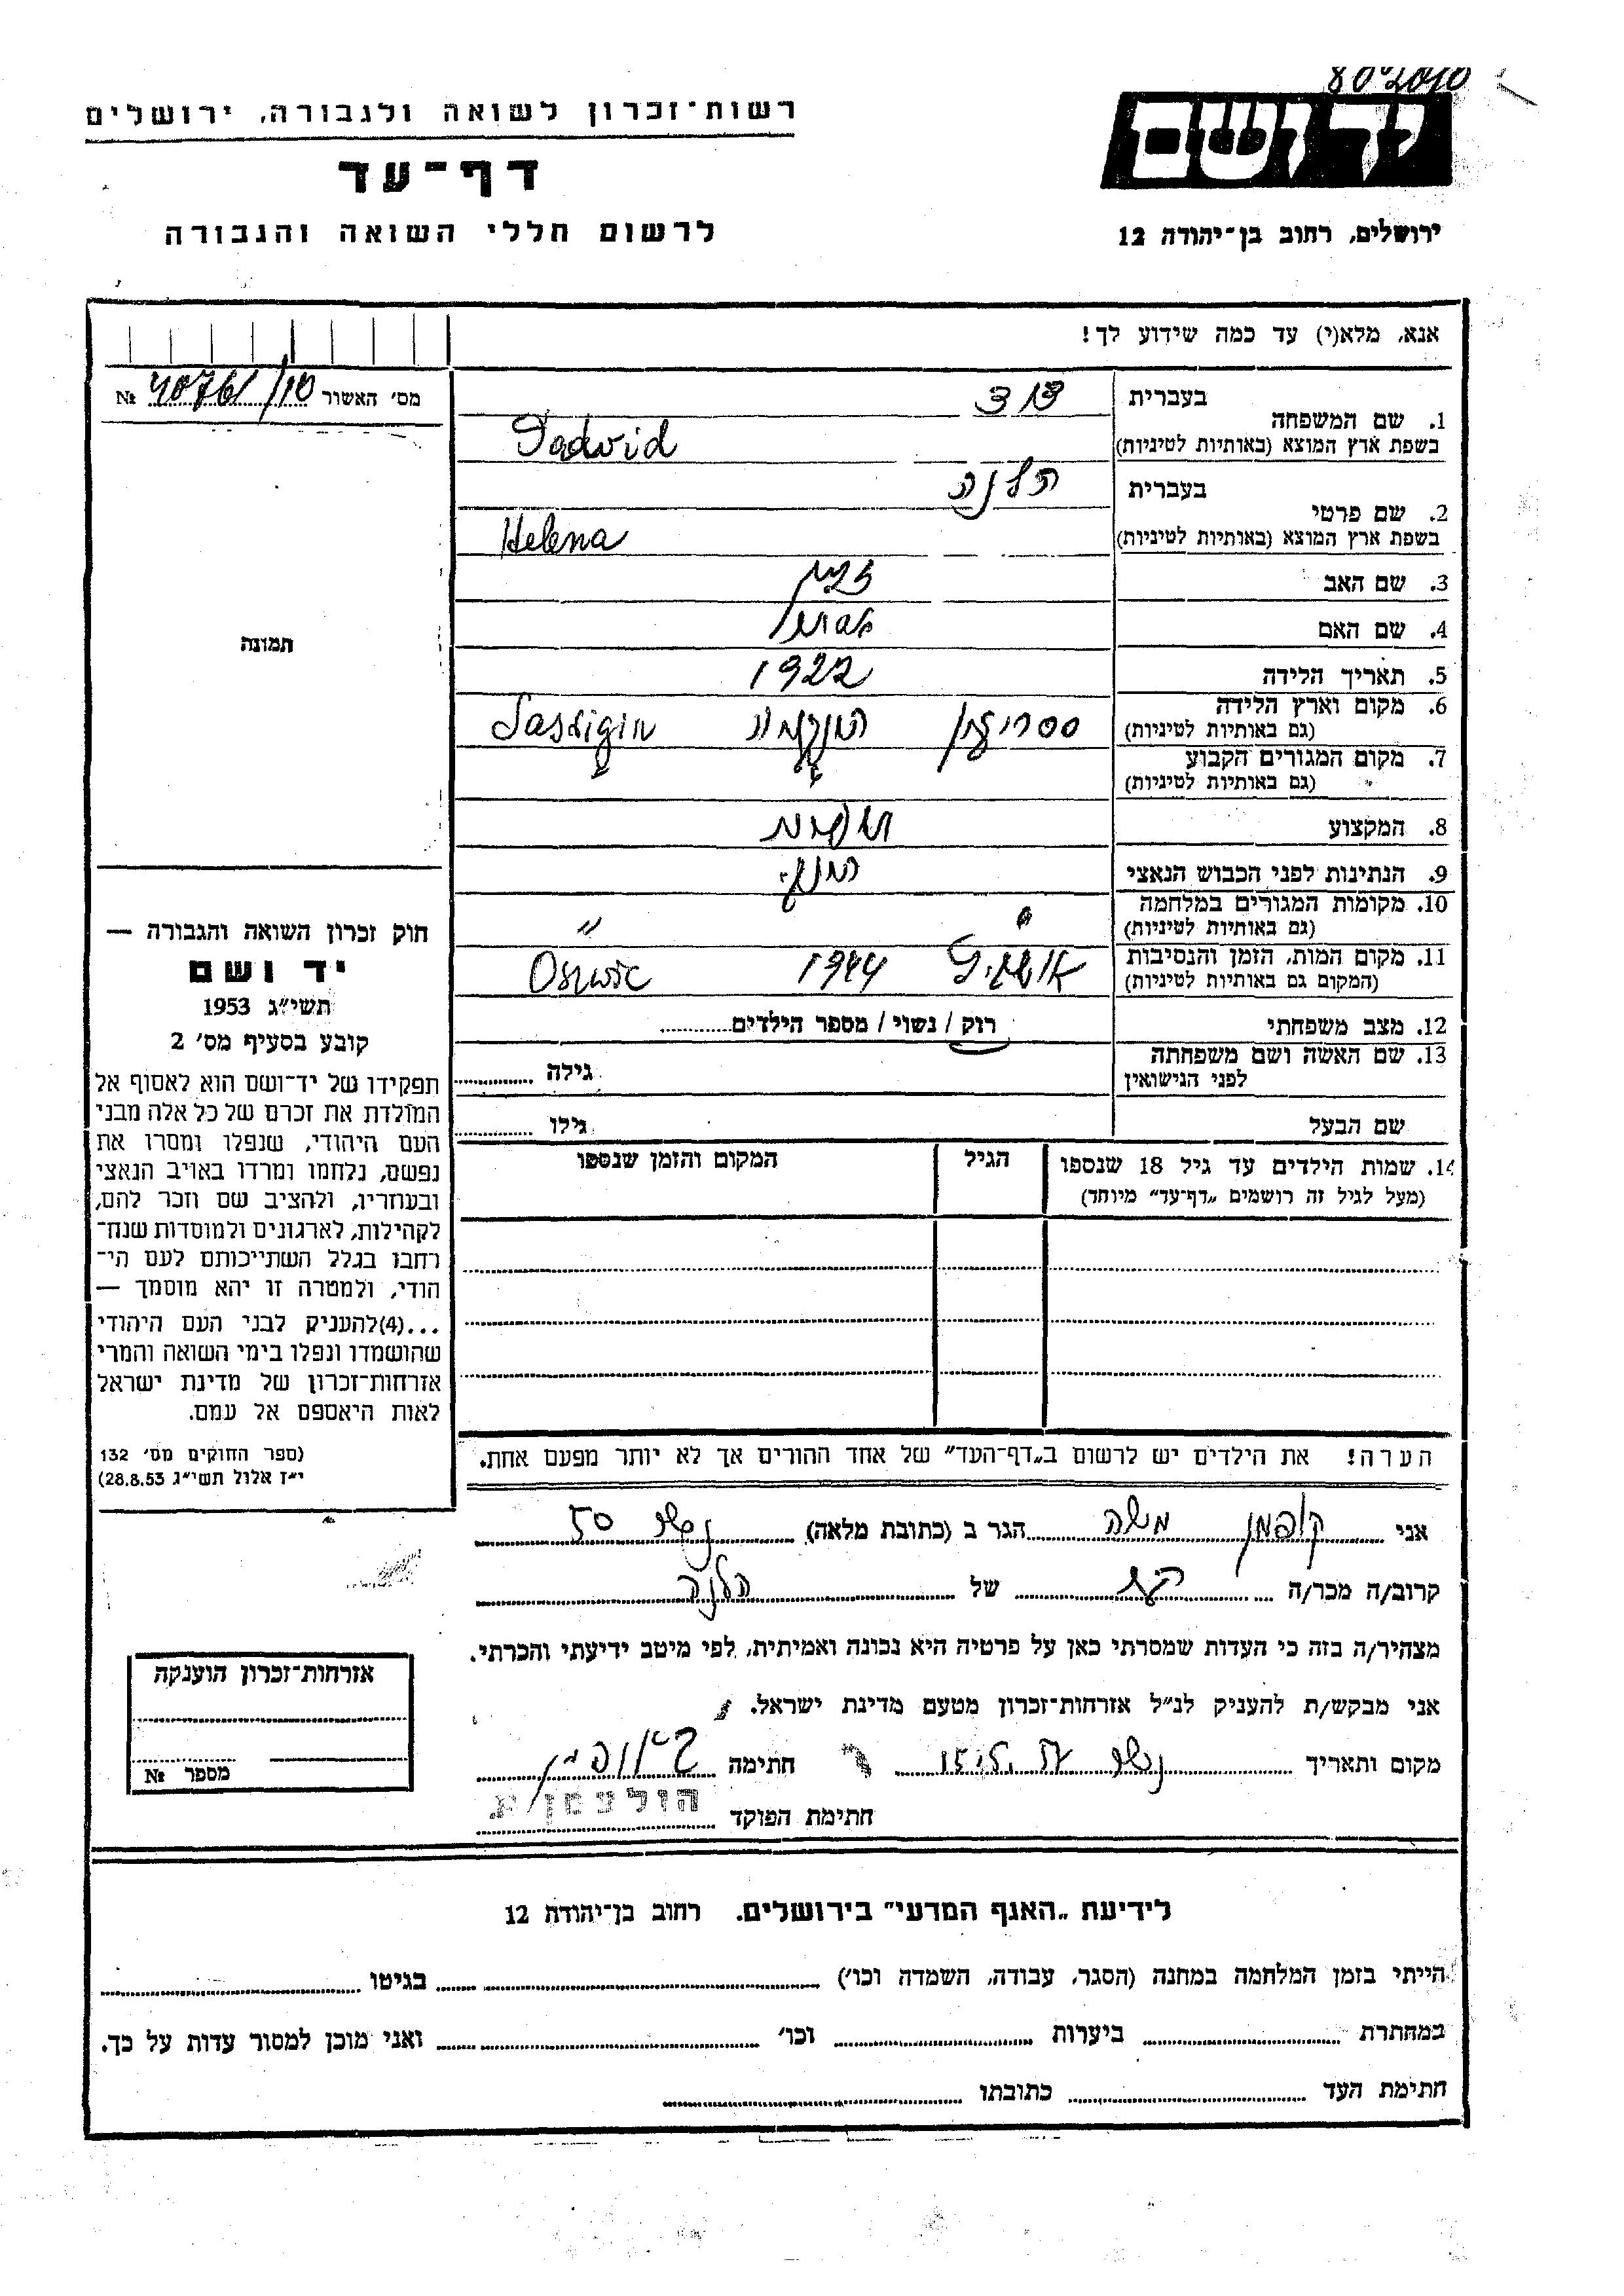 רשות־זכרון לשואה ולגבורה, ירושלים
דף־עד
לרשום חללי השואה והגבורה
יד ושם
ירושלים, רחוב בן־יהודה 12
אנא, מלא(י) עד כמה שידוע לך!
מס׳ האשור № 40761/10
1. שם המשפחה
בעברית דוד
בשפת ארץ המוצא (באותיות לטיניות) Dadvid
2. שם פרטי
בעברית הלנה
בשפת ארץ המוצא (באותיות לטיניות) Helena
3. שם האב
4. שם האם
5. תאריך הלידה 1922
6. מקום וארץ הלידה
(גם באותיות לטיניות)
7. מקום המגורים הקבוע
(גם באותיות לטיניות)
8. המקצוע
9. הנתינות לפני הכבוש הנאצי
10. מקומות המגורים במלחמה
(גם באותיות לטיניות) "
11. מקום המות, הזמן והנסיבות
(המקום גם באותיות לטיניות) 1944
12. מצב משפחתי רוק / נשוי / מספר הילדים
13. שם האשה ושם משפחתה
לפני הנישואין גילה
שם הבעל גילו
14. שמות הילדים עד גיל 18 שנספו
(מעל לגיל זה רושמים „דף־עד" מיוחד)
הגיל
המקום והזמן שנספו
הערה! את הילדים יש לרשום ב„דף־העד" של אחד ההורים אך לא יותר מפעם אחת.
תמונה
חוק זכרון השואה והגבורה —
יד ושם
תשי״ג 1953
קובע בסעיף מס׳ 2
תפקידו של יד־ושם הוא לאסוף אל
המולדת את זכרם של כל אלה מבני
העם היהודי, שנפלו ומסרו את
נפשם, נלחמו ומרדו באויב הנאצי
ובעוזריו, ולהציב שם וזכר להם,
לקהילות, לארגונים ולמוסדות שנח־
רבו בגלל השתייכותם לעם הי־
הודי, ולמטרה זו יהא מוסמך —
...(4)להעניק לבני העם היהודי
שהושמדו ונפלו בימי השואה והמרי
אזרחות־זכרון של מדינת ישראל
לאות היאספם אל עמם.
(ספר החוקים מס׳ 132
י״ז אלול תשי״ג 28.8.53)
אני קופמן משה הגר ב (כתובת מלאה) 50
קרוב/ה מכר/ה של הלנה
מצהיר/ה בזה כי העדות שמסרתי כאן על פרטיה היא נכונה ואמיתית, לפי מיטב ידיעתי והכרתי.
אני מבקש/ת להעניק לנ״ל אזרחות־זכרון מטעם מדינת ישראל.
מקום ותאריך חתימה
חתימת הפוקד
אזרחות־זכרון הוענקה
מספר №
לידיעת „האגף המדעי" בירושלים. רחוב בן־יהודה 12
הייתי בזמן המלחמה במחנה (הסגר, עבודה, השמדה וכו׳) בגיטו
במחתרת ביערות וכו׳ ואני מוכן למסור עדות על כך.
חתימת העד כתובתו